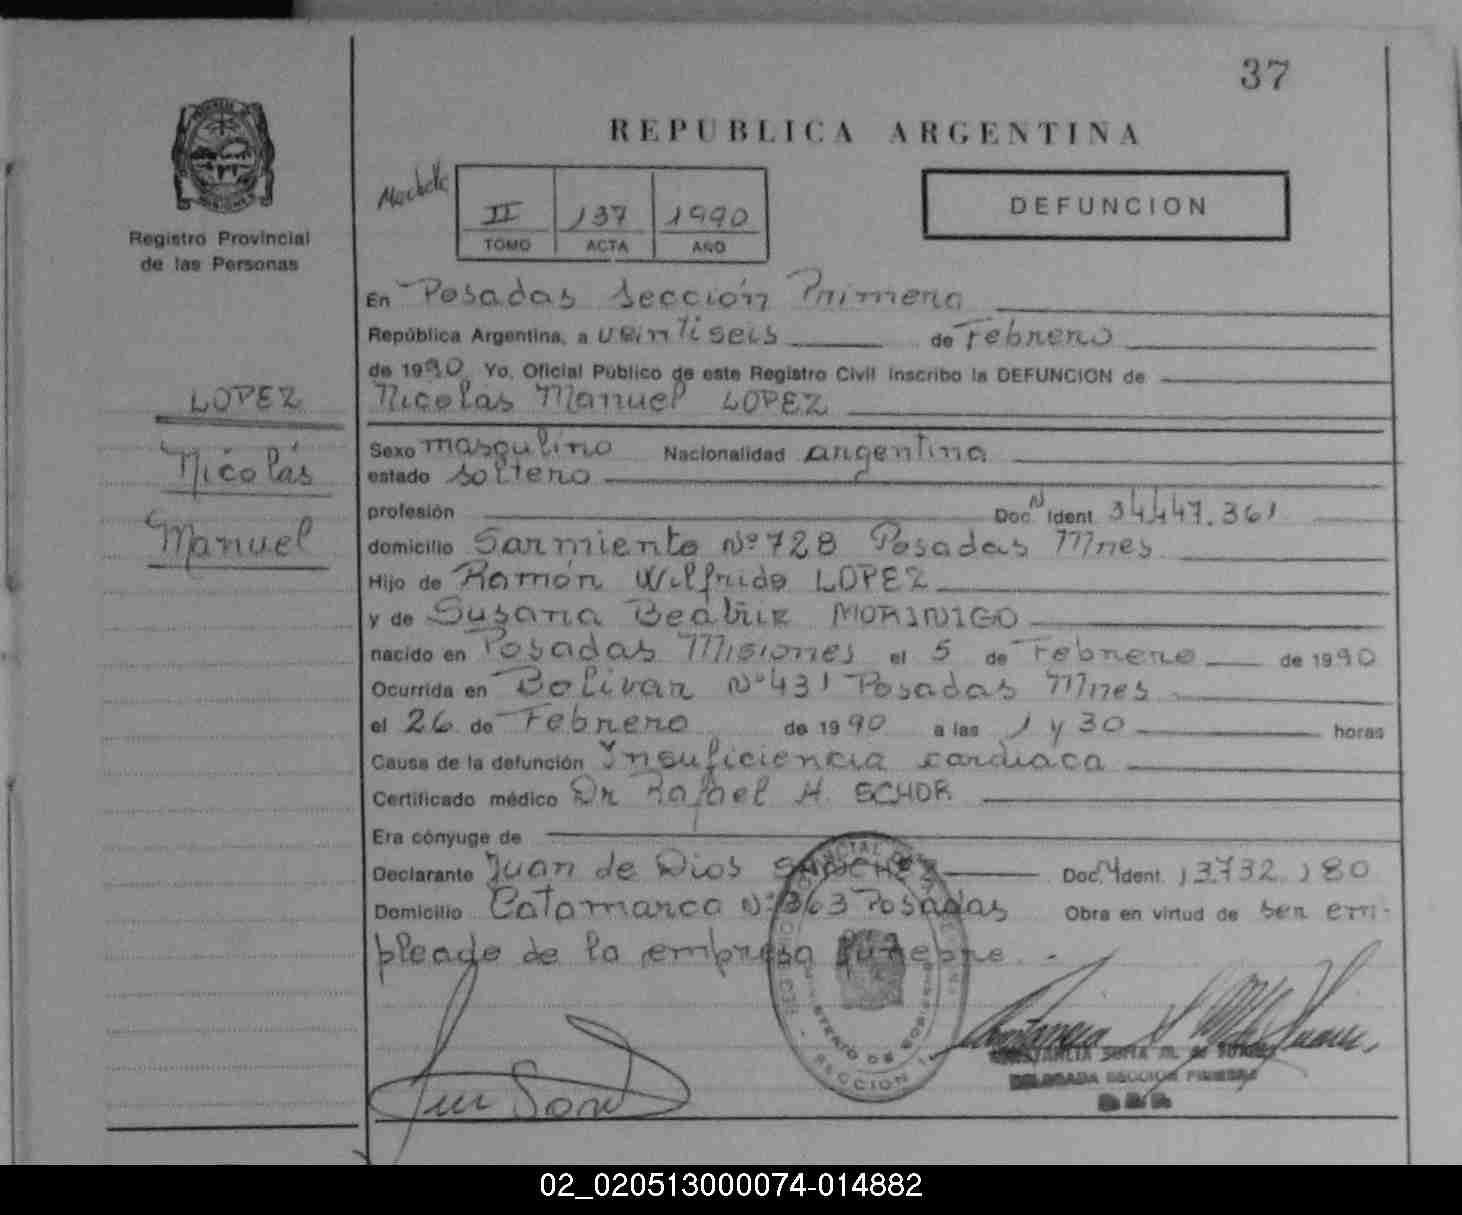 37
REPUBLICA ARGENTINA
Registro Provincial
de las Personas
II 137 1990
TOMO ACTA AÑO
DEFUNCION
En Posadas Sección Primera
República Argentina, a veintiseis de Febrero
de 1990 Yo, Oficial Público de este Registro Civil inscribo la DEFUNCION de
Nicolás Manuel LOPEZ
LOPEZ
Nicolás
Manuel
Sexo masculino Nacionalidad argentina
estado soltero
profesión Doc. N Ident. 34.447.361
domicilio Sarmiento Nº 728 Posadas Mnes
Hijo de Ramón Wilfrido LOPEZ
y de Susana Beatriz MORINIGO
nacido en Posadas Misiones el 5 de Febrero de 1990
Ocurrida en Bolivar Nº 431 Posadas Mnes
el 26 de Febrero de 1990 a las 1 y 30 horas
Causa de la defunción Insuficiencia cardiaca
Certificado médico Dr Rafael H. ECHOR
Era cónyuge de
Declarante Juan de Dios SANCHEZ Doc. N Ident. 13.732.180
Domicilio Catamarca Nº 363 Posadas Obra en virtud de ser em-
pleado de la empresa fúnebre.-
SECCION 1
DELEGADA SECCION PRIMERA
02_020513000074-014882